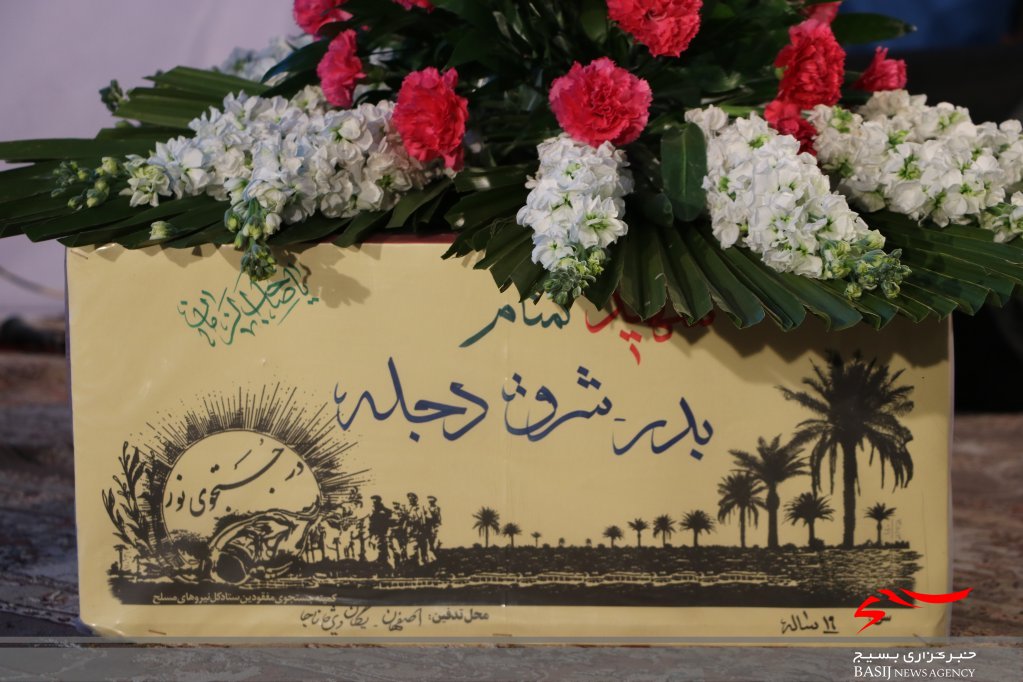 یا صاحب الزمان
گمنام
بدر شرق دجله
در جستجوی نور
کمیته جستجوی مفقودین ستاد کل نیروهای مسلح
محل تدفین: اصفهان یگان ویژه ناجا
۱۹ ساله
بسیج
خبرگزاری بسیج
BASIJ NEWS AGENCY